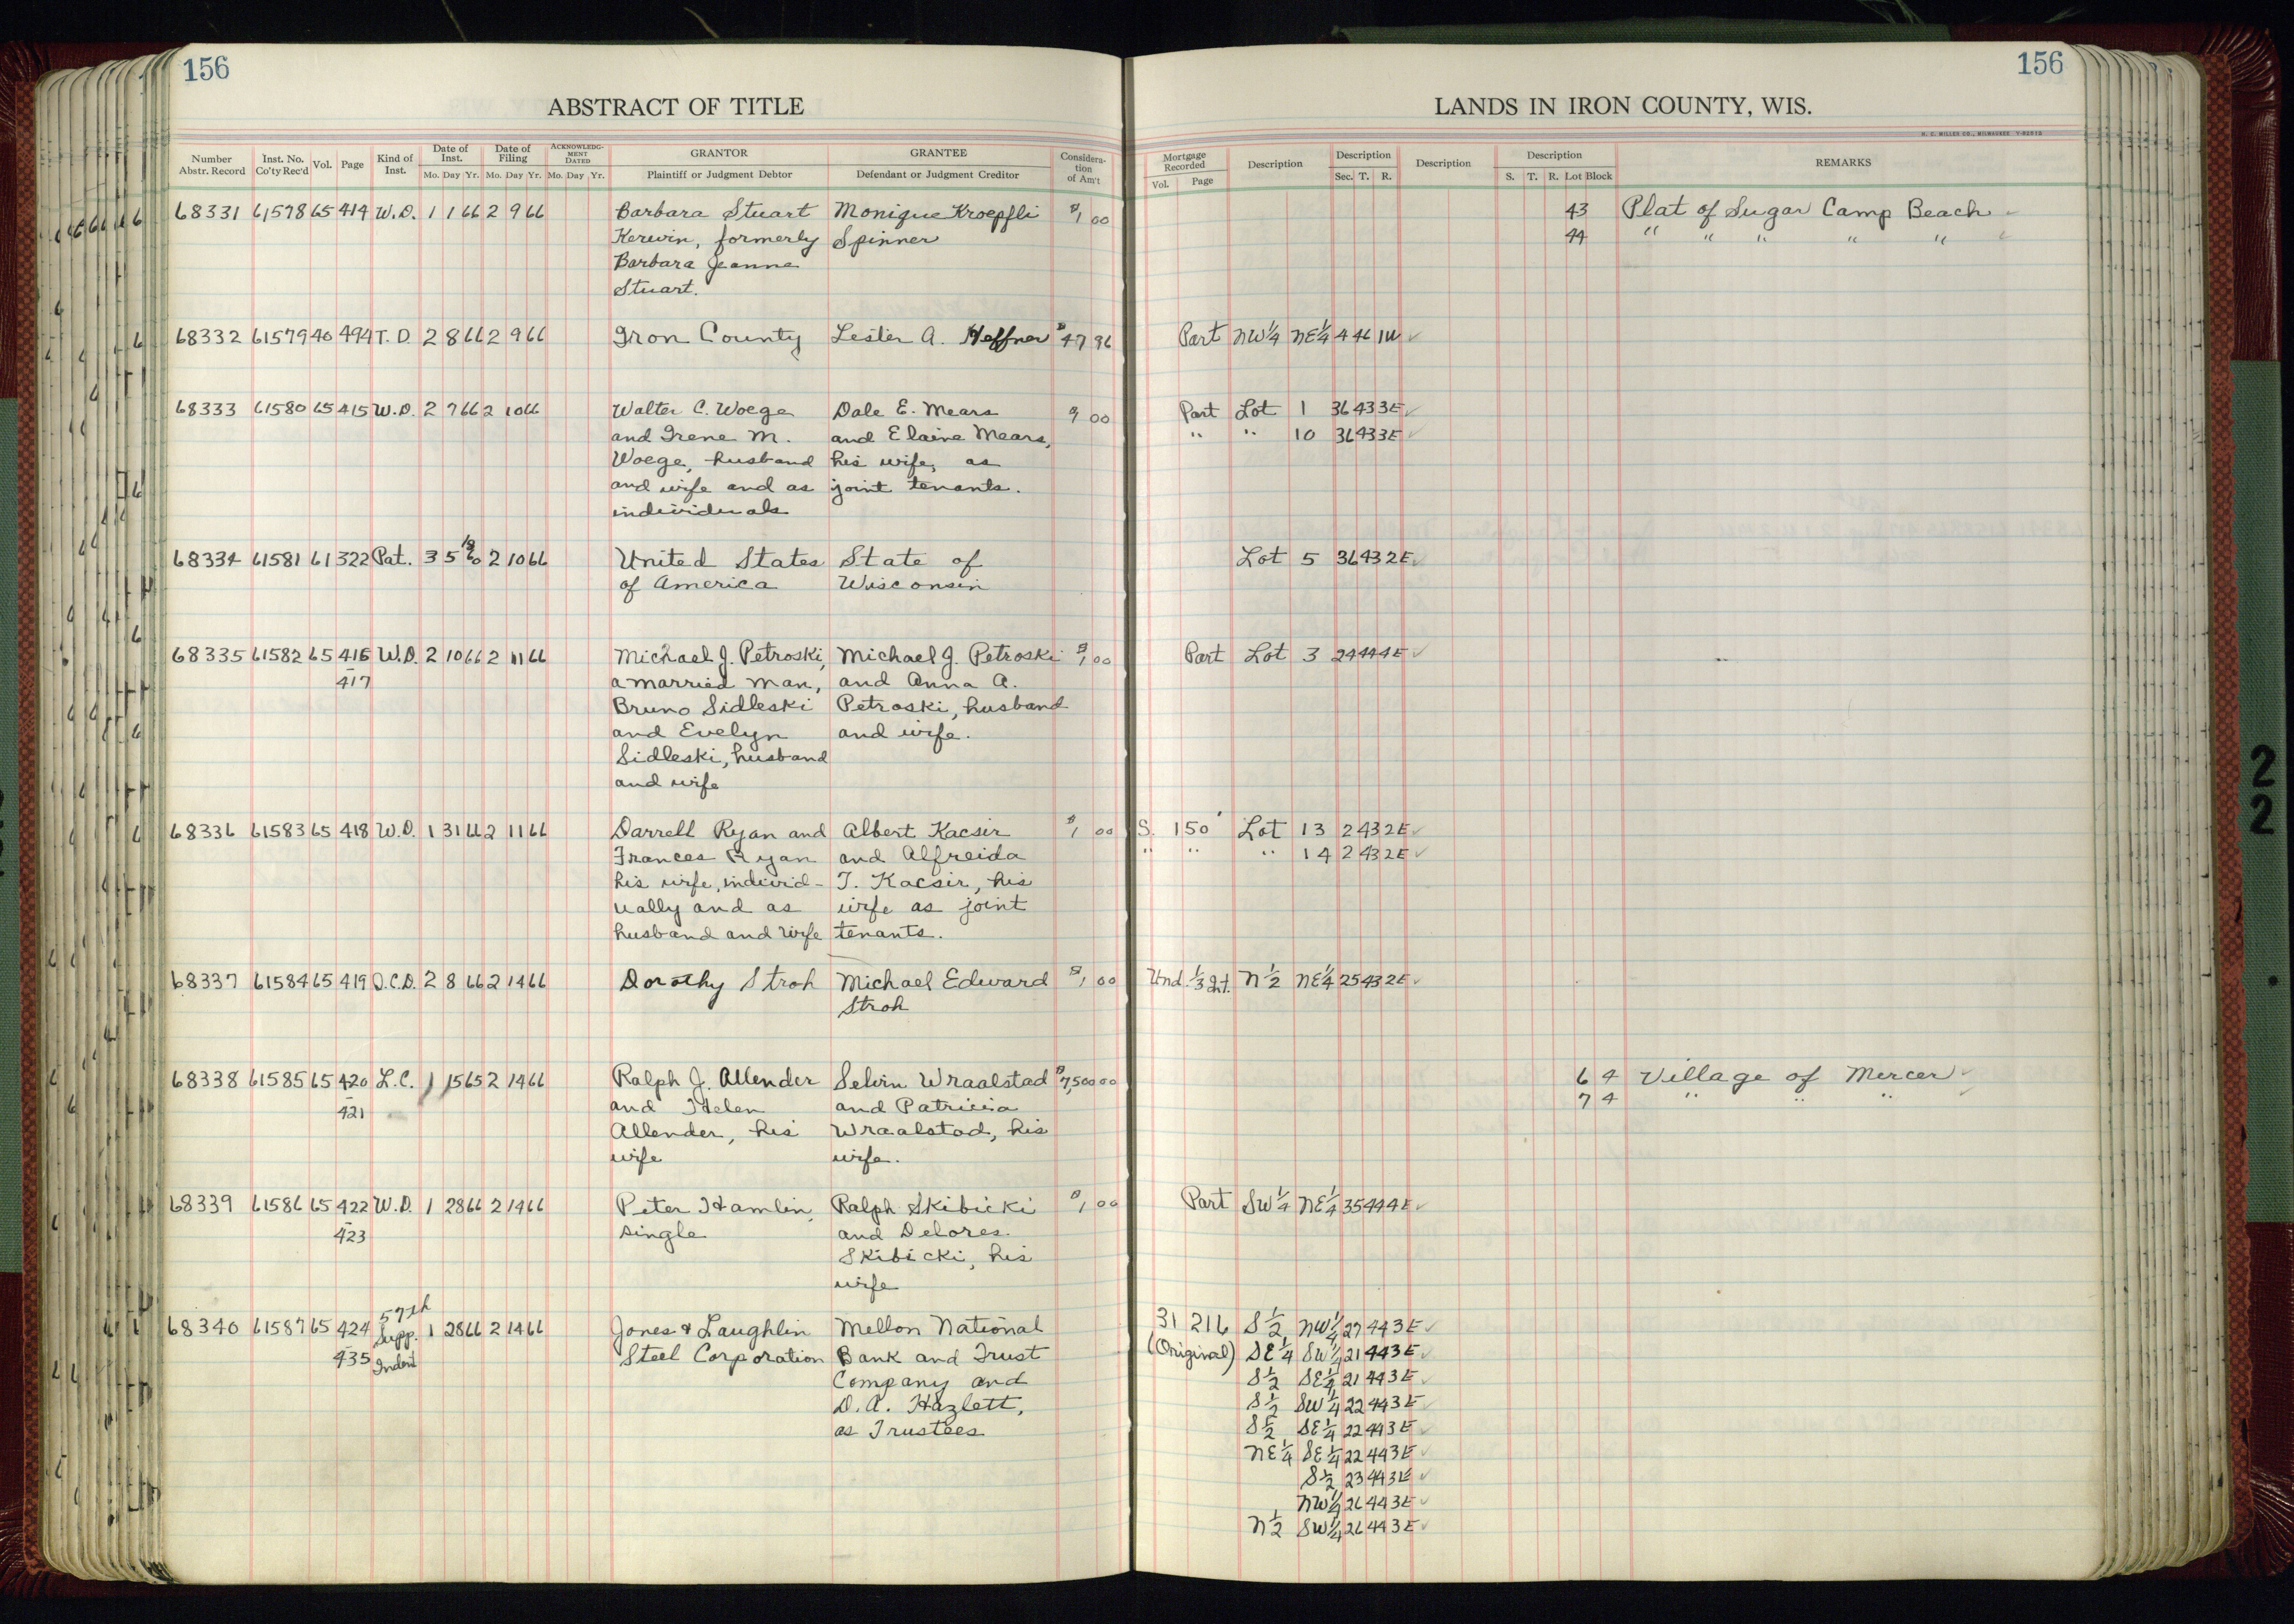 156
156
ABSTRACT OF TITLE
LANDS IN IRON COUNTY, WIS.
H. C. MILLER CO., MILWAUKEE
Number Abstr. Record Inst. No. Co'ty Rec'd Vol. Page Kind of Inst. Date of Inst. Mo. Day Yr. Date of Filing Mo. Day Yr. ACKNOWLEDGMENT DATED Mo. Day Yr. GRANTOR Plaintiff or Judgment Debtor GRANTEE Defendant or Judgment Creditor Consideration of Am't
Mortgage Recorded Vol. Page Description Description Sec. T. R. Description Description S. T. R. Lot Block REMARKS
68331 61578 65 414 W.D. 1 1 66 2 9 66 Barbara Stuart Monique Kroepfli $1 00 43 Plat of Sugar Camp Beach
Kerwin, formerly Spinner 44 " " " " "
Barbara Jeanne
Stuart.
68332 61579 40 494 T.D. 2 8 66 2 9 66 Iron County Lester A. Heffner $47 96 Part NW 1/4 NE 1/4 4 46 1W
68333 61580 65 415 W.D. 2 7 66 2 10 66 Walter C. Woege Dale E. Mears 00 Part Lot 1 36 43 3E
and Irene M. and Elaine Mears, " " 10 36 43 3E
Woege, husband his wife, as
and wife and as joint tenants.
individuals
68334 61581 61 322 Pat. 3 5 2 10 66 United States State of Lot 5 36 43 2E
of America Wisconsin
68335 61582 65 416 W.D. 2 10 66 2 11 66 Michael J. Petroski, Michael J. Petroski $1 00 Part Lot 3 24 44 4E
417 a married man, and Anna A.
Bruno Sidleski Petroski, husband
and Evelyn and wife.
Sidleski, husband
and wife
68336 61583 65 418 W.D. 1 31 66 2 11 66 Darrell Ryan and Albert Kacsir $1 00 S. 150' Lot 13 2 43 2E
Frances Ryan and Alfreida " " " 14 2 43 2E
his wife, individ- T. Kacsir, his
ually and as wife as joint
husband and wife tenants.
68337 61584 65 419 Q.C.D. 2 8 66 2 14 66 Dorothy Stroh Michael Edward $1 00 Und. 1/3 Int. N 1/2 NE 1/4 25 43 2E
Stroh
68338 61585 65 420 L.C. 1 15 65 2 14 66 Ralph J. Allender Selvin Wraalstad $7,500 00 6 4 Village of Mercer
421 and Helen and Patricia 7 4 " " "
Allender, his Wraalstad, his
wife wife.
68339 61586 65 422 W.D. 1 28 66 2 14 66 Peter Hamlin, Ralph Skibicki $1 00 Part SW 1/4 NE 1/4 35 44 4E
423 single and Delores
Skibicki, his
wife
57th
68340 61587 65 424 Supp. 1 28 66 2 14 66 Jones & Laughlin Mellon National 31 216 S 1/2 NW 1/4 27 44 3E
435 Indent Steel Corporation Bank and Trust (Original) SE 1/4 SW 1/4 21 44 3E
Company and S 1/2 SE 1/4 21 44 3E
D. A. Hazlett, S 1/2 SW 1/4 22 44 3E
as Trustees S 1/2 SE 1/4 22 44 3E
NE 1/4 SE 1/4 22 44 3E
S 1/2 23 44 3E
NW 1/4 26 44 3E
N 1/2 SW 1/4 26 44 3E
2
2